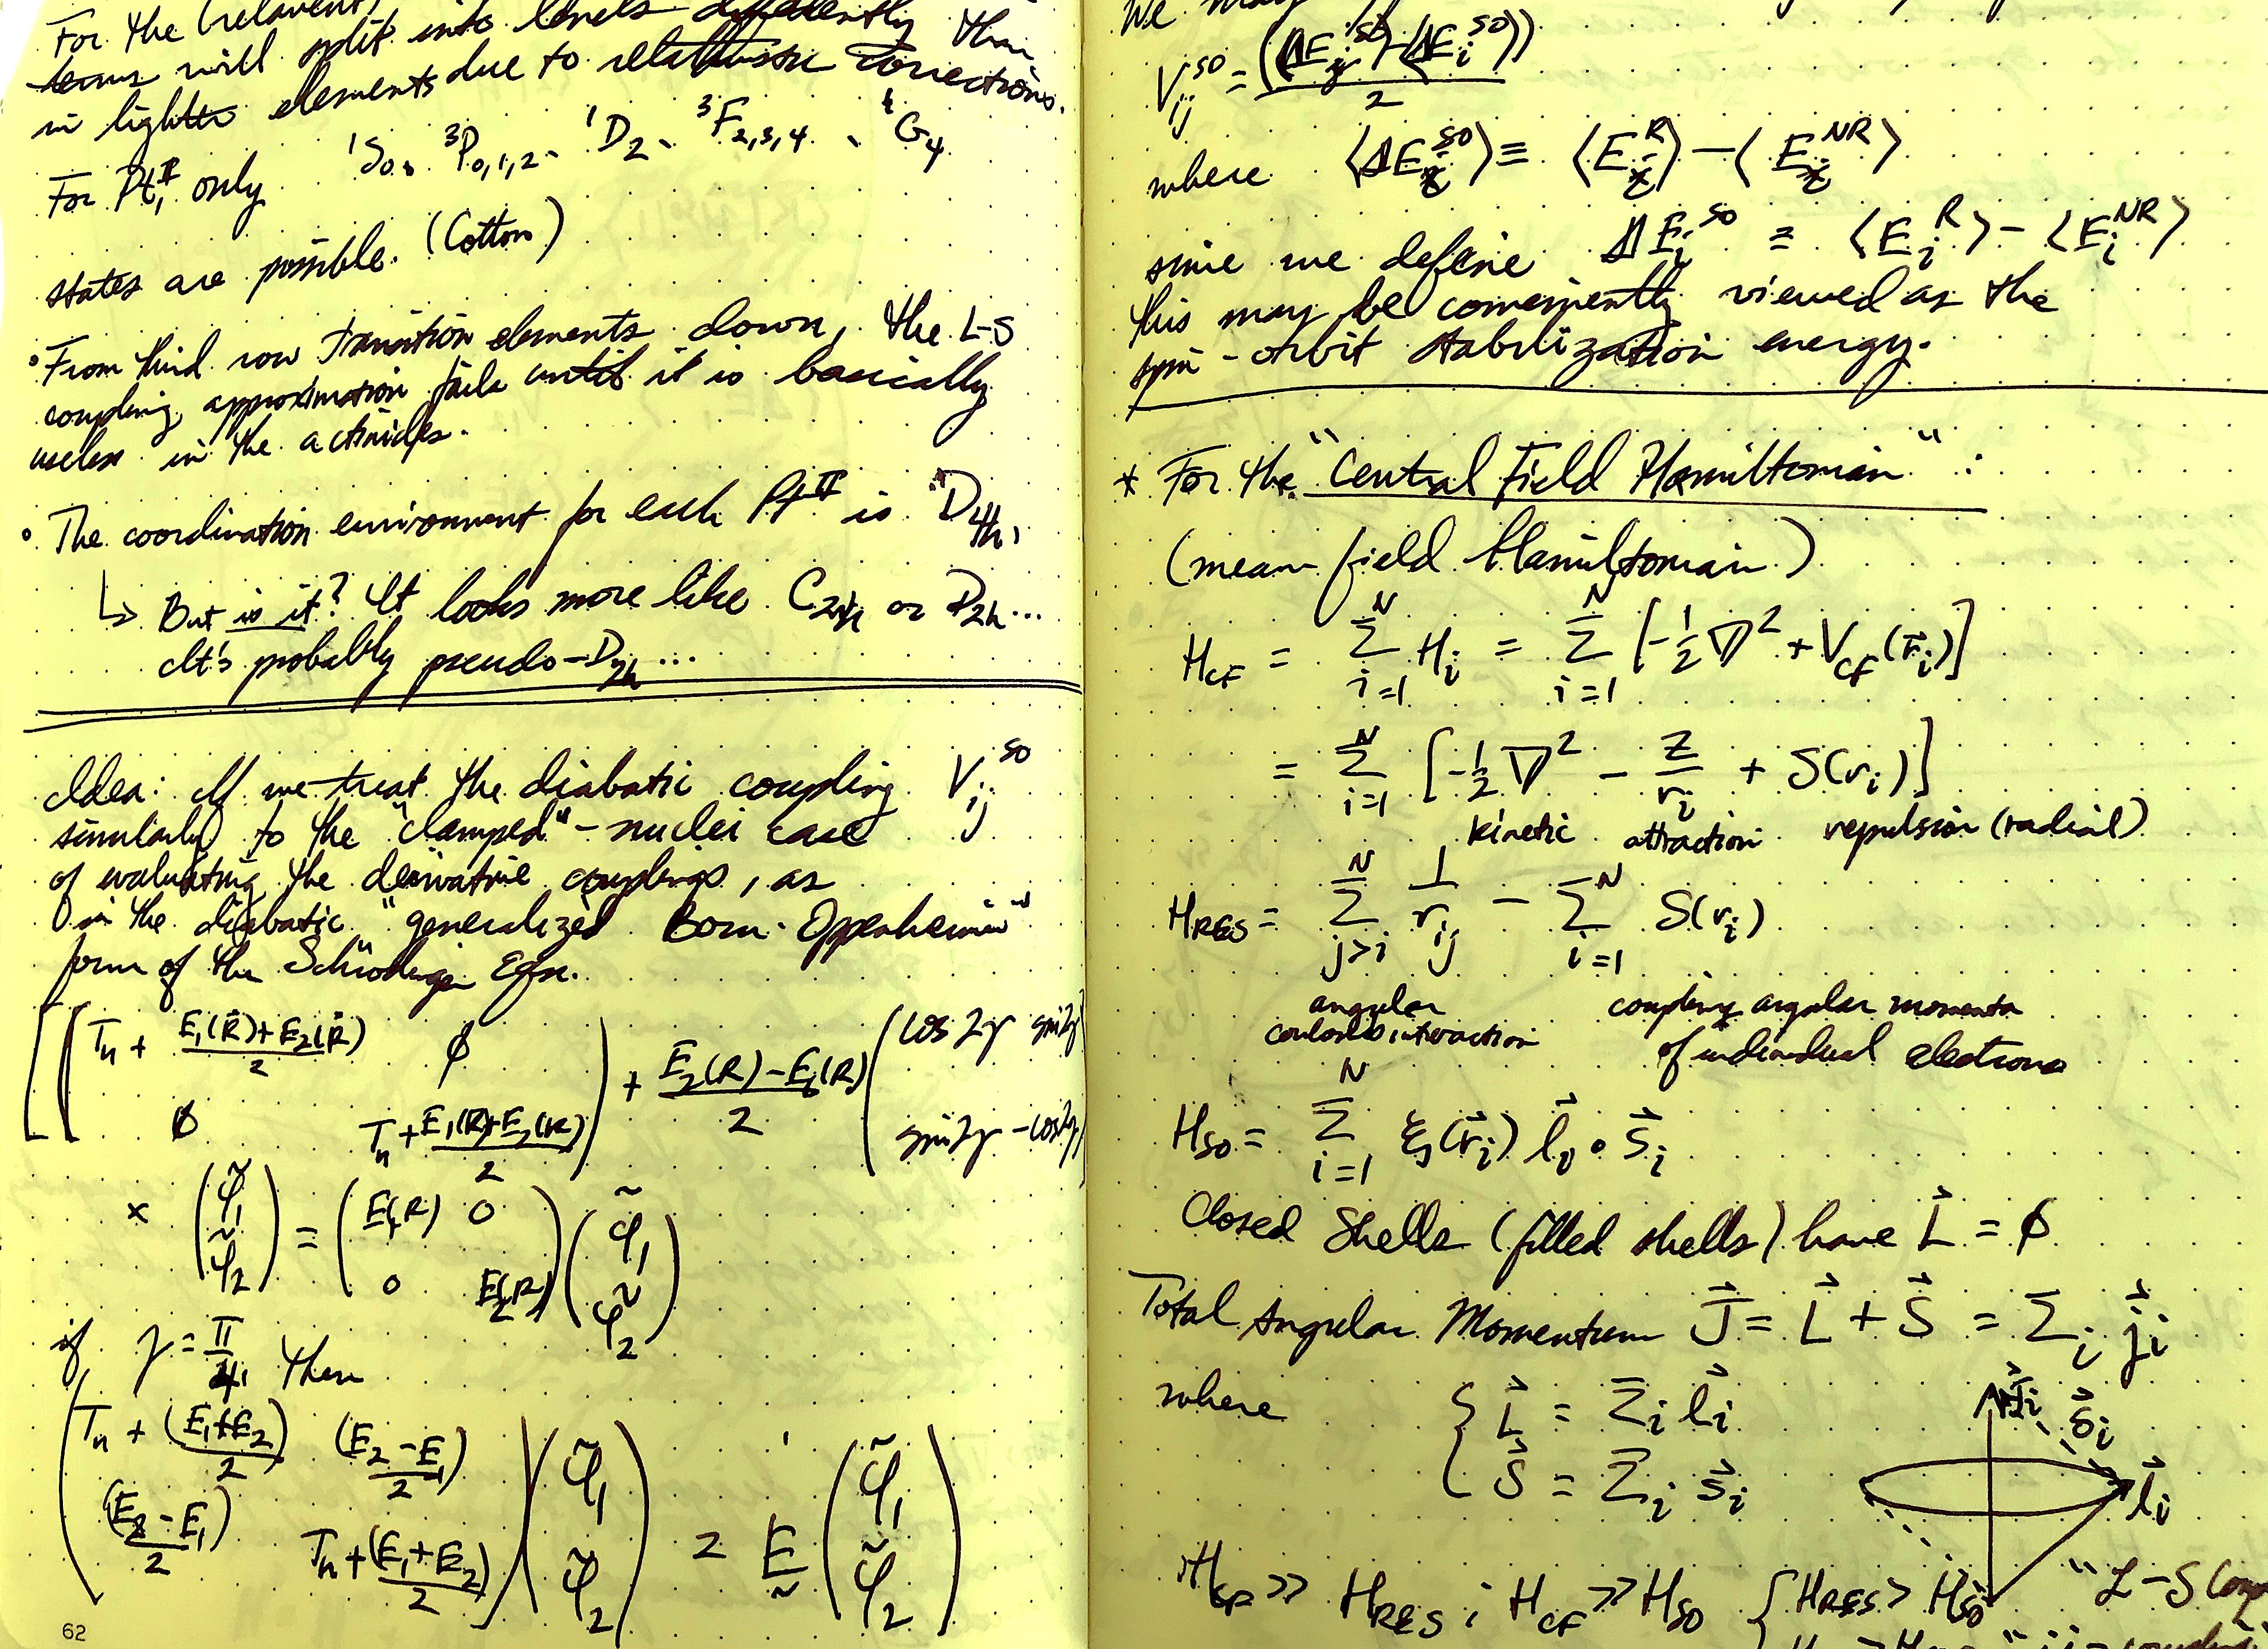 For the (relavent)
terms will split into levels differently than
in lighter elements due to relativistic corrections.
For Pt^II, only ¹S₀, ³P₀,₁,₂, ¹D₂, ³F₂,₃,₄, ¹G₄
states are possible. (Cotton)
• From third row transition elements down, the L-S
coupling approximation fails until it is basically
useless in the actinides.
• The coordination environment for each Pt^II is "D₄h,
↳ But is it? It looks more like C₂h or D₂h...
It's probably pseudo-D₂h...
Idea: If we treat the diabatic coupling V_ij^SO
similarly to the "clamped"-nuclei case
of evaluating the derivative couplings, as
in the diabatic "generalized Born-Oppenheimer"
form of the Schrödinger Eqn.
[( T_n + (E₁(R)+E₂(R))/2   ∅
∅   T_n + (E₁(R)+E₂(R))/2 ) + (E₂(R)−E₁(R))/2 ( cos2γ sin2γ
sin2γ −cos2γ
× (φ̃₁ φ̃₂) = ( E₁(R) 0
0 E₂(R) ) (φ̃₁ φ̃₂)
if γ = π/4, then
( T_n + (E₁+E₂)/2   (E₂−E₁)/2
(E₂−E₁)/2   T_n + (E₁+E₂)/2 ) (φ̃₁ φ̃₂) = E (φ̃₁ φ̃₂)
62
We may
V_ij^SO = (⟨ΔE_j^SO⟩−⟨ΔE_i^SO⟩)/2
where ⟨ΔE_i^SO⟩ ≡ ⟨E_i^R⟩ − ⟨E_i^NR⟩
since we define ΔE_i^SO = ⟨E_i^R⟩ − ⟨E_i^NR⟩
this may be conveniently viewed as the
spin-orbit stabilization energy.
* For the "Central Field Hamiltonian":
(mean field Hamiltonian)
H_CF = Σ_{i=1}^N H_i = Σ_{i=1}^N [−½∇² + V_CF(r⃗_i)]
= Σ_{i=1}^N [−½∇² − Z/r_i + S(r_i)]
kinetic attraction repulsion (radial)
H_RES = Σ_{j>i}^N 1/r_ij − Σ_{i=1}^N S(r_i)
angular coupling angular momenta
coulomb interaction of individual electrons
H_SO = Σ_{i=1}^N ξ(r⃗_i) l⃗_i · s⃗_i
Closed Shells (filled shells) have L⃗ = ∅
Total Angular Momentum J⃗ = L⃗ + S⃗ = Σ_i j⃗_i
where { L⃗ = Σ_i l⃗_i
S⃗ = Σ_i s⃗_i
j⃗_i s⃗_i
l⃗_i
H_CF >> H_RES ; H_CF >> H_SO { H_RES > H_SO "L-S Coup